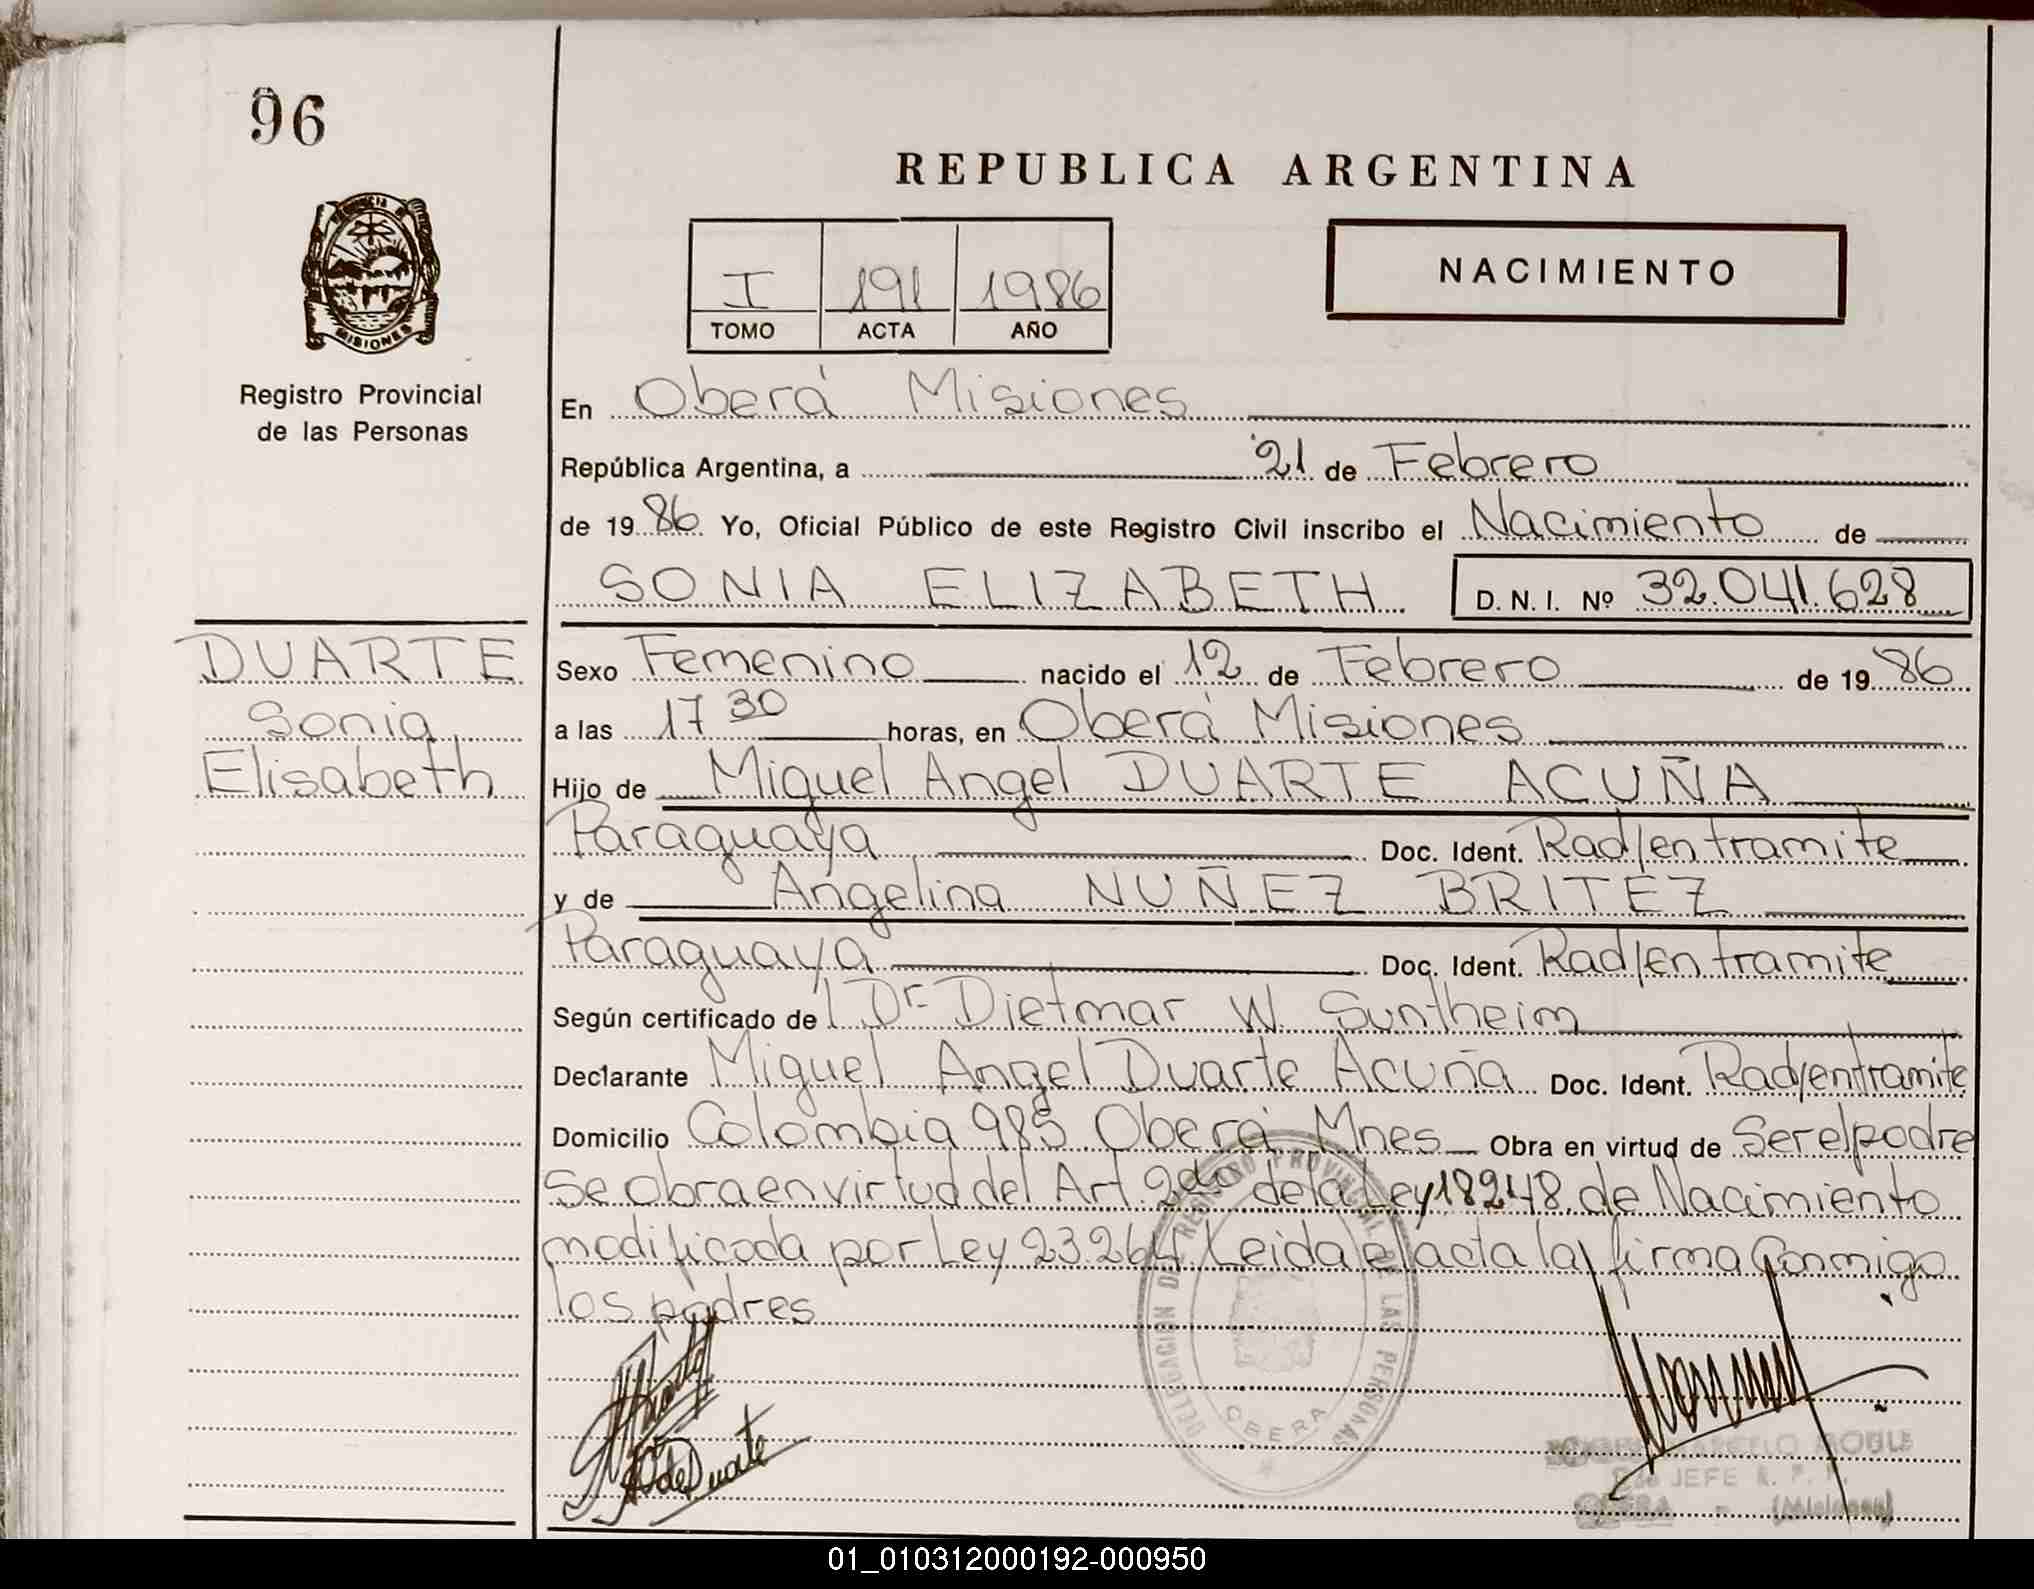 96
REPUBLICA ARGENTINA
I 191 1986
TOMO ACTA AÑO
NACIMIENTO
PROVINCIA DE
MISIONES
Registro Provincial
de las Personas
En Oberá Misiones
República Argentina, a 21 de Febrero
de 1986 Yo, Oficial Público de este Registro Civil inscribo el Nacimiento de
SONIA ELIZABETH D. N. I. Nº 32.041.628
DUARTE
Sonia
Elisabeth
Sexo Femenino nacido el 12 de Febrero de 1986
a las 17 30 horas, en Oberá Misiones
Hijo de Miguel Angel DUARTE ACUÑA
Paraguaya Doc. Ident. Rad/entramite
y de Angelina NUÑEZ BRITEZ
Paraguaya Doc. Ident. Rad/en tramite
Según certificado de l Dr Dietmar W. Suntheim
Declarante Miguel Angel Duarte Acuña Doc. Ident. Rad/entramite
Domicilio Colombia 985 Oberá Mnes Obra en virtud de Ser el padre
Se obra en virtud del Art. 2do de la Ley 18248 de Nacimiento
modificada por Ley 23.264 Leida el acta la firma Conmigo
los padres
DELEGACION DEL REGISTRO PROVINCIAL DE LAS PERSONAS
OBERA
A de Duarte
JEFE R. P. P.
OBERA - (Misiones)
01_010312000192-000950